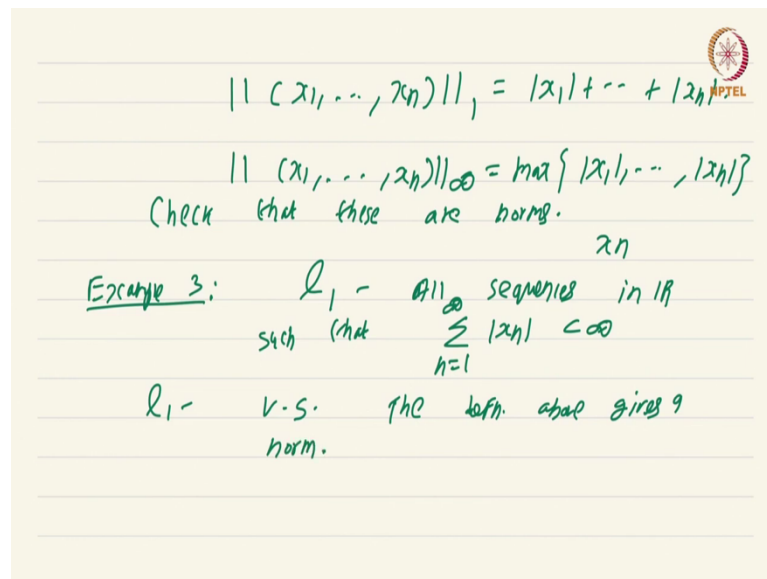 || (x1, ..., xn) ||_1 = |x1| + ... + |xn|
NPTEL
|| (x1, ..., xn) ||_∞ = max { |x1|, ..., |xn| }
Check that these are norms.
xn
Example 3: l_1 - All sequences in IR
such that ∞ Σ n=1 |xn| < ∞
l_1 - v.s. The defn. above gives a
norm.